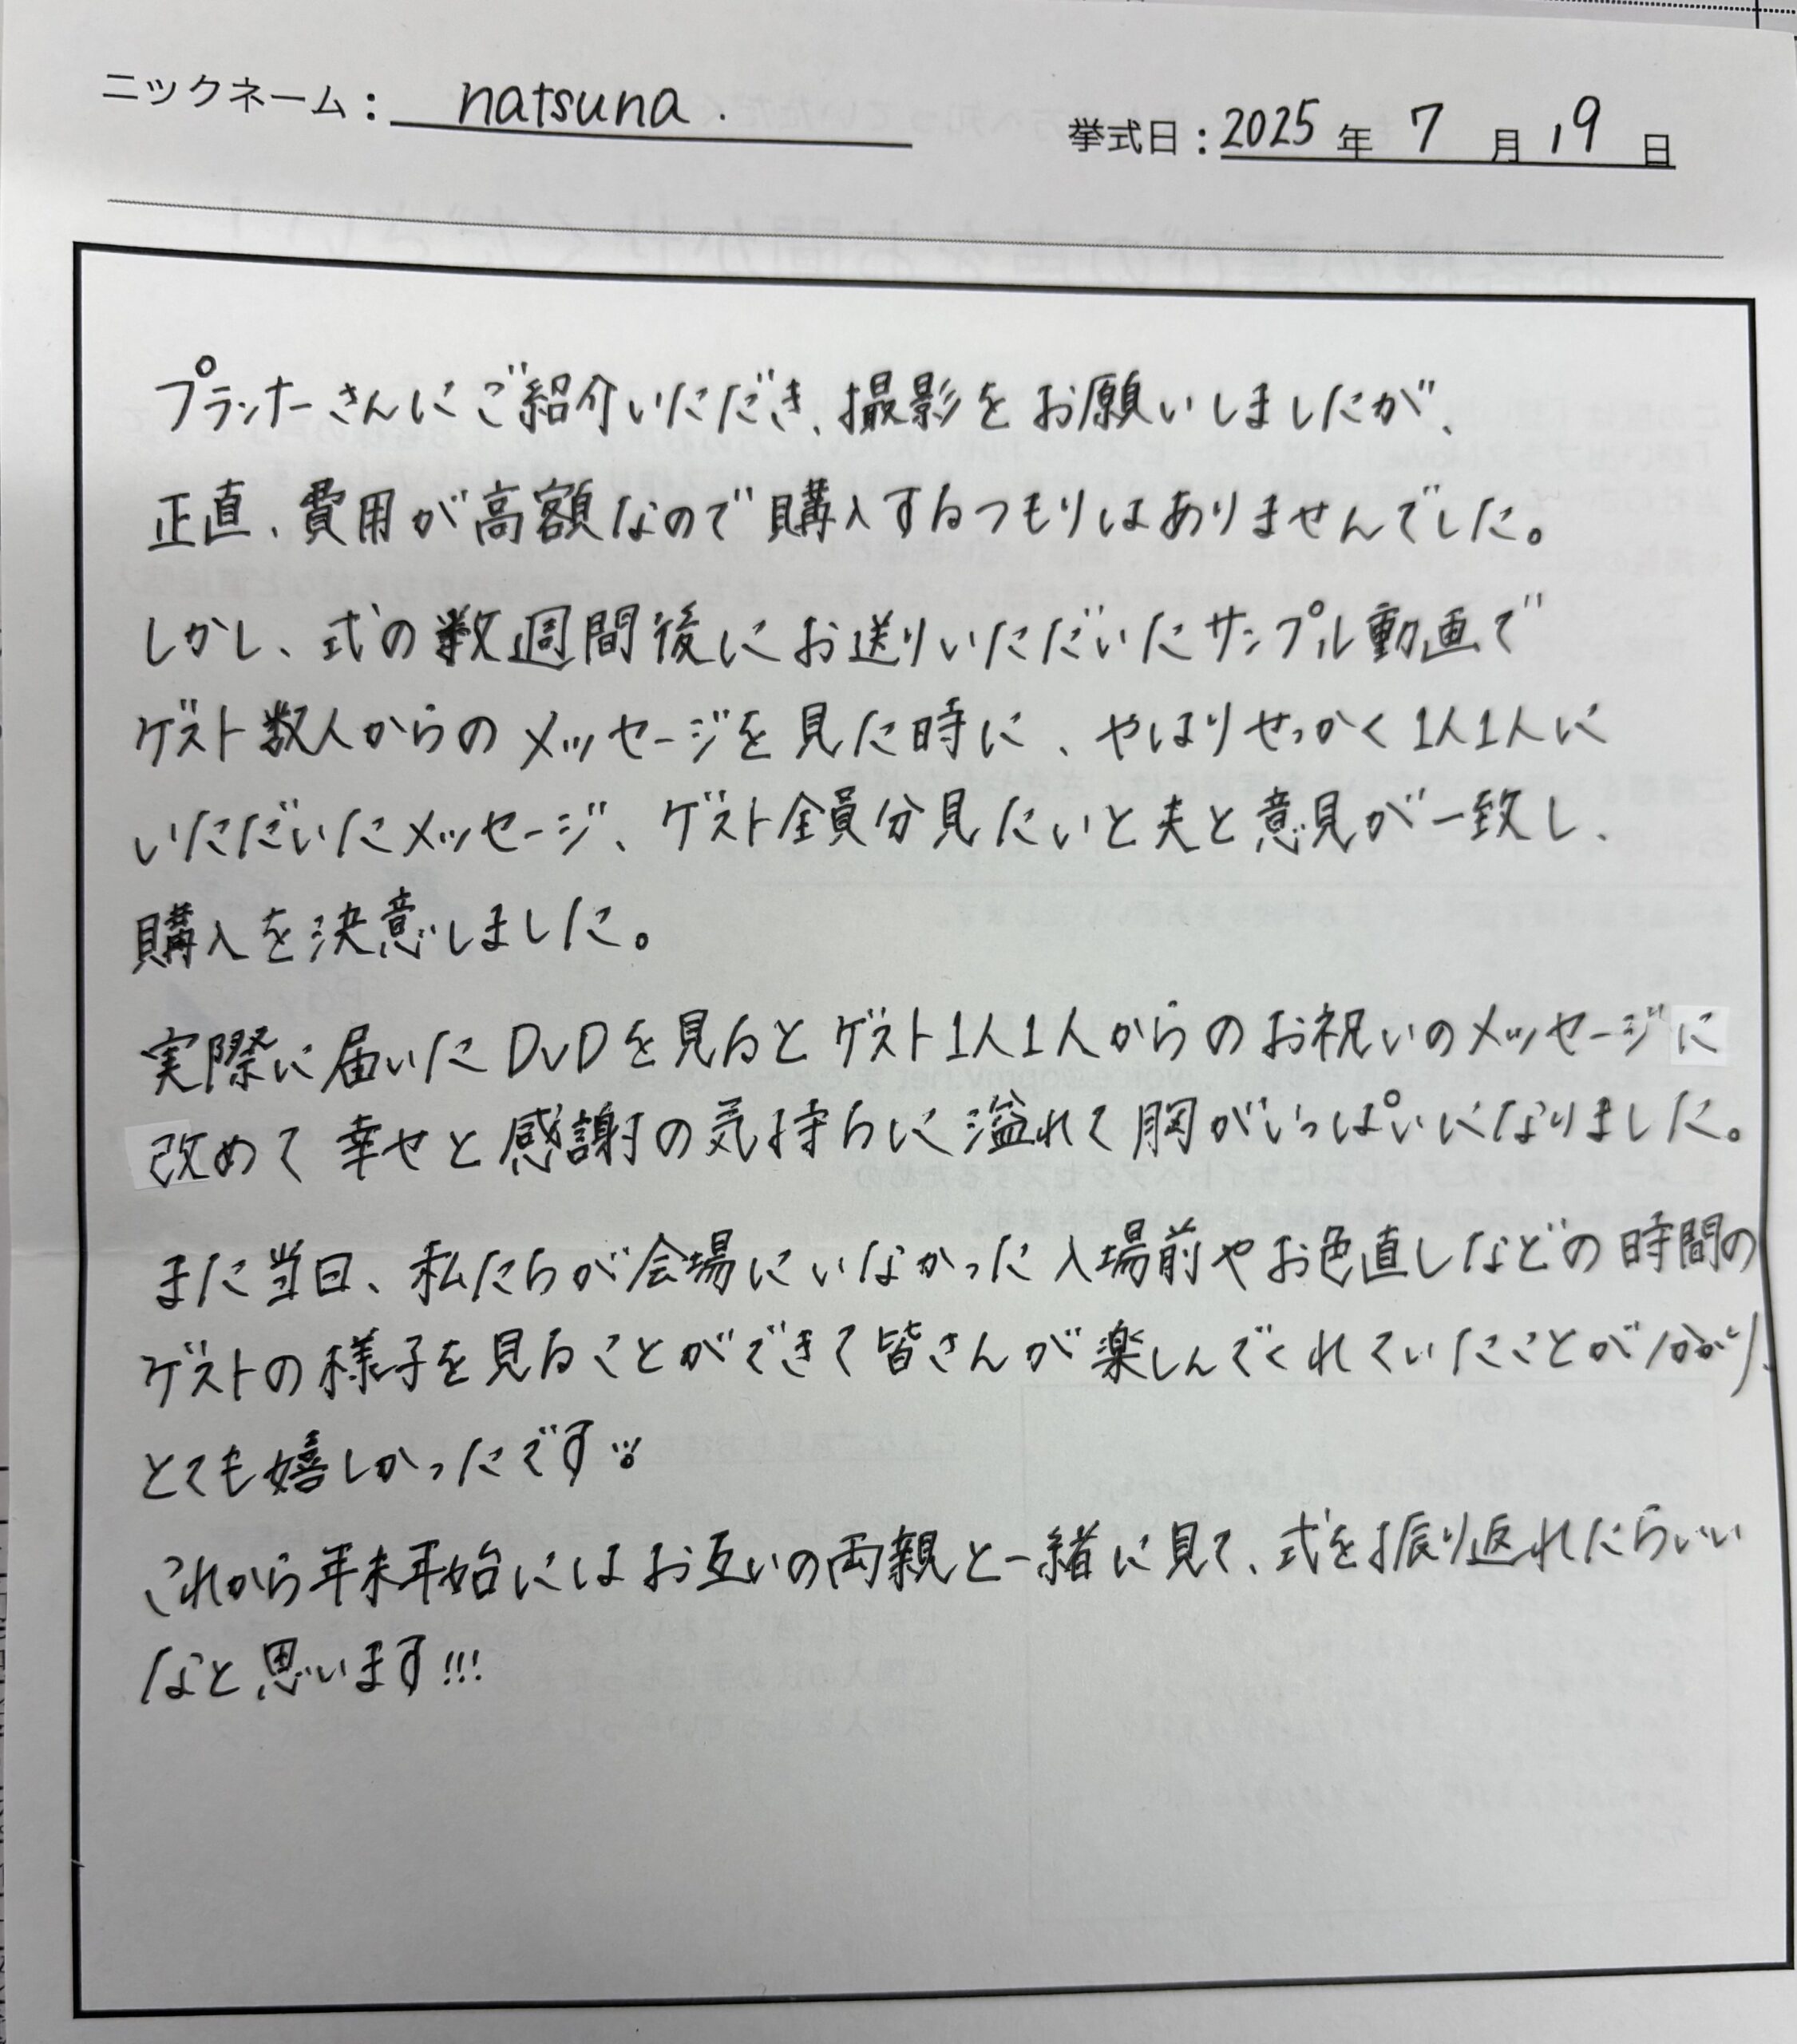 ニックネーム: natsuna.
挙式日: 2025年 7月 19日
プランナーさんにご紹介いただき、撮影をお願いしましたが、
正直、費用が高額なので購入するつもりはありませんでした。
しかし、式の数週間後にお送りいただいたサンプル動画で
ゲスト数人からのメッセージを見た時に、やはりせっかく1人1人に
いただいたメッセージ、ゲスト全員分見たいと夫と意見が一致し、
購入を決意しました。
実際に届いたDVDを見るとゲスト1人1人からのお祝いのメッセージに
改めて幸せと感謝の気持ちに溢れて胸がいっぱいになりました。
また当日、私たちが会場にいなかった入場前やお色直しなどの時間の
ゲストの様子を見ることができて皆さんが楽しんでくれていたことが分かり、
とても嬉しかったです
これから年末年始にはお互いの両親と一緒に見て、式を振り返れたらいい
なと思います!!!